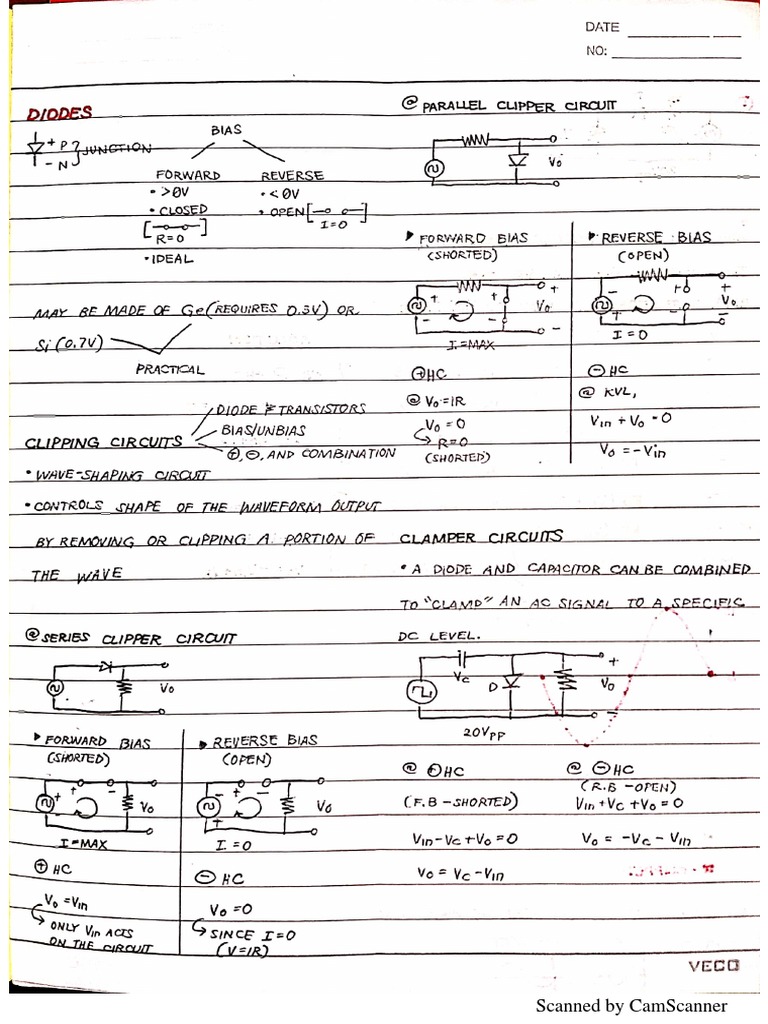 DATE
NO:
DIODES
+ P
- N
JUNCTION
BIAS
FORWARD
• >0V
• CLOSED
R=0
• IDEAL
REVERSE
• <0V
• OPEN
I=0
MAY BE MADE OF Ge(REQUIRES 0.3V) OR
Si (0.7V)
PRACTICAL
CLIPPING CIRCUITS
DIODE & TRANSISTORS
BIAS/UNBIAS
⊕, ⊖, AND COMBINATION
• WAVE-SHAPING CIRCUIT
• CONTROLS SHAPE OF THE WAVEFORM OUTPUT
BY REMOVING OR CLIPPING A PORTION OF
THE WAVE
@ SERIES CLIPPER CIRCUIT
Vo
FORWARD BIAS
(SHORTED)
+ + - Vo
-
I=MAX
⊕ HC
Vo = Vin
ONLY Vin ACTS
ON THE CIRCUIT
REVERSE BIAS
(OPEN)
- + - Vo
+
I = 0
⊖ HC
Vo = 0
SINCE I=0
(V=IR)
@ PARALLEL CLIPPER CIRCUIT
Vo
FORWARD BIAS
(SHORTED)
+ + +
Vo
- - -
I = MAX
⊕HC
@ Vo = IR
Vo = 0
R=0
(SHORTED)
REVERSE BIAS
(OPEN)
- + +
Vo
+ - -
I = 0
⊖ HC
@ KVL,
Vin + Vo = 0
Vo = -Vin
CLAMPER CIRCUITS
• A DIODE AND CAPACITOR CAN BE COMBINED
TO "CLAMP" AN AC SIGNAL TO A SPECIFIC
DC LEVEL.
Vc D + Vo -
20Vpp
@ ⊕HC
(F.B-SHORTED)
Vin - Vc + Vo = 0
Vo = Vc - Vin
@ ⊖HC
(R.B-OPEN)
Vin + Vc + Vo = 0
Vo = -Vc - Vin
VECO
Scanned by CamScanner